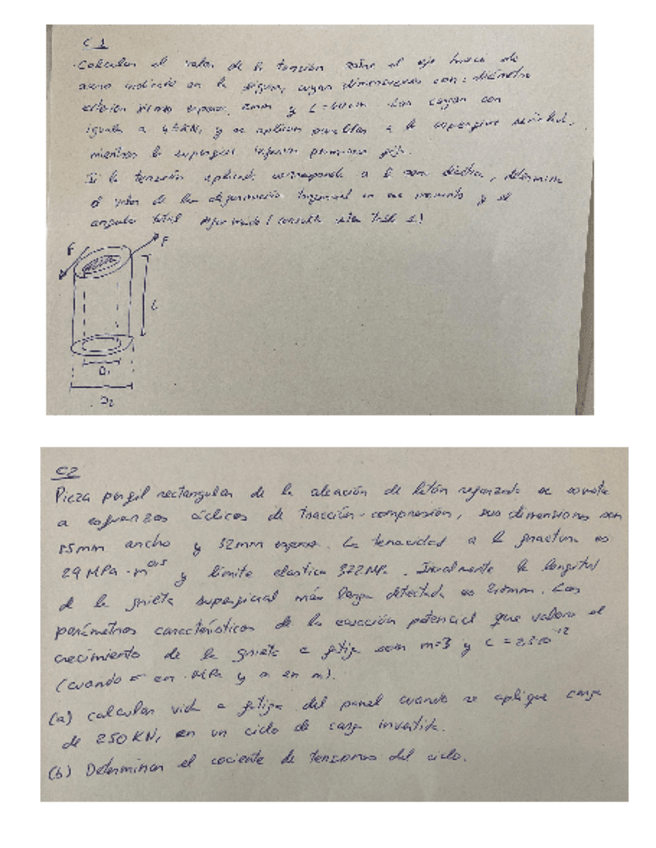 C1
Calcular el valor de la tensión sobre el eje hueco de
acero indicado en la figura, cuyas dimensiones son: diámetro
exterior espesor, y L = 40cm. Las cargas son
iguales a 45KN, y se aplican paralelas a la superficie
mientras la superficie inferior permanece fija.
Si la tensión aplicada corresponde a la zona elástica, determina
el valor de la deformación tangencial en ese momento y el
angulo total
F
F
L
D₁
D₂
C2
Pieza perfil rectangular de la aleación de latón se someta
a esfuerzos cíclicos de tracción-compresión, sus dimensiones son
55mm ancho y 32mm espesor. La tenacidad a la fractura es
29 MPa·m^0.5 y límite elastico 322MPa. Inicialmente la longitud
de la grieta superficial más larga detectada es. Los
parámetros característicos de la ecuación potencial que valora el
crecimiento de la grieta a fatiga son m=3 y C =
(cuando σ en MPa y a en m).
(a) calcular vida a fatiga del panel cuando se aplique carga
de 250 KN, en un ciclo de carga invertida.
(b) Determinar el cociente de tensiones del ciclo.